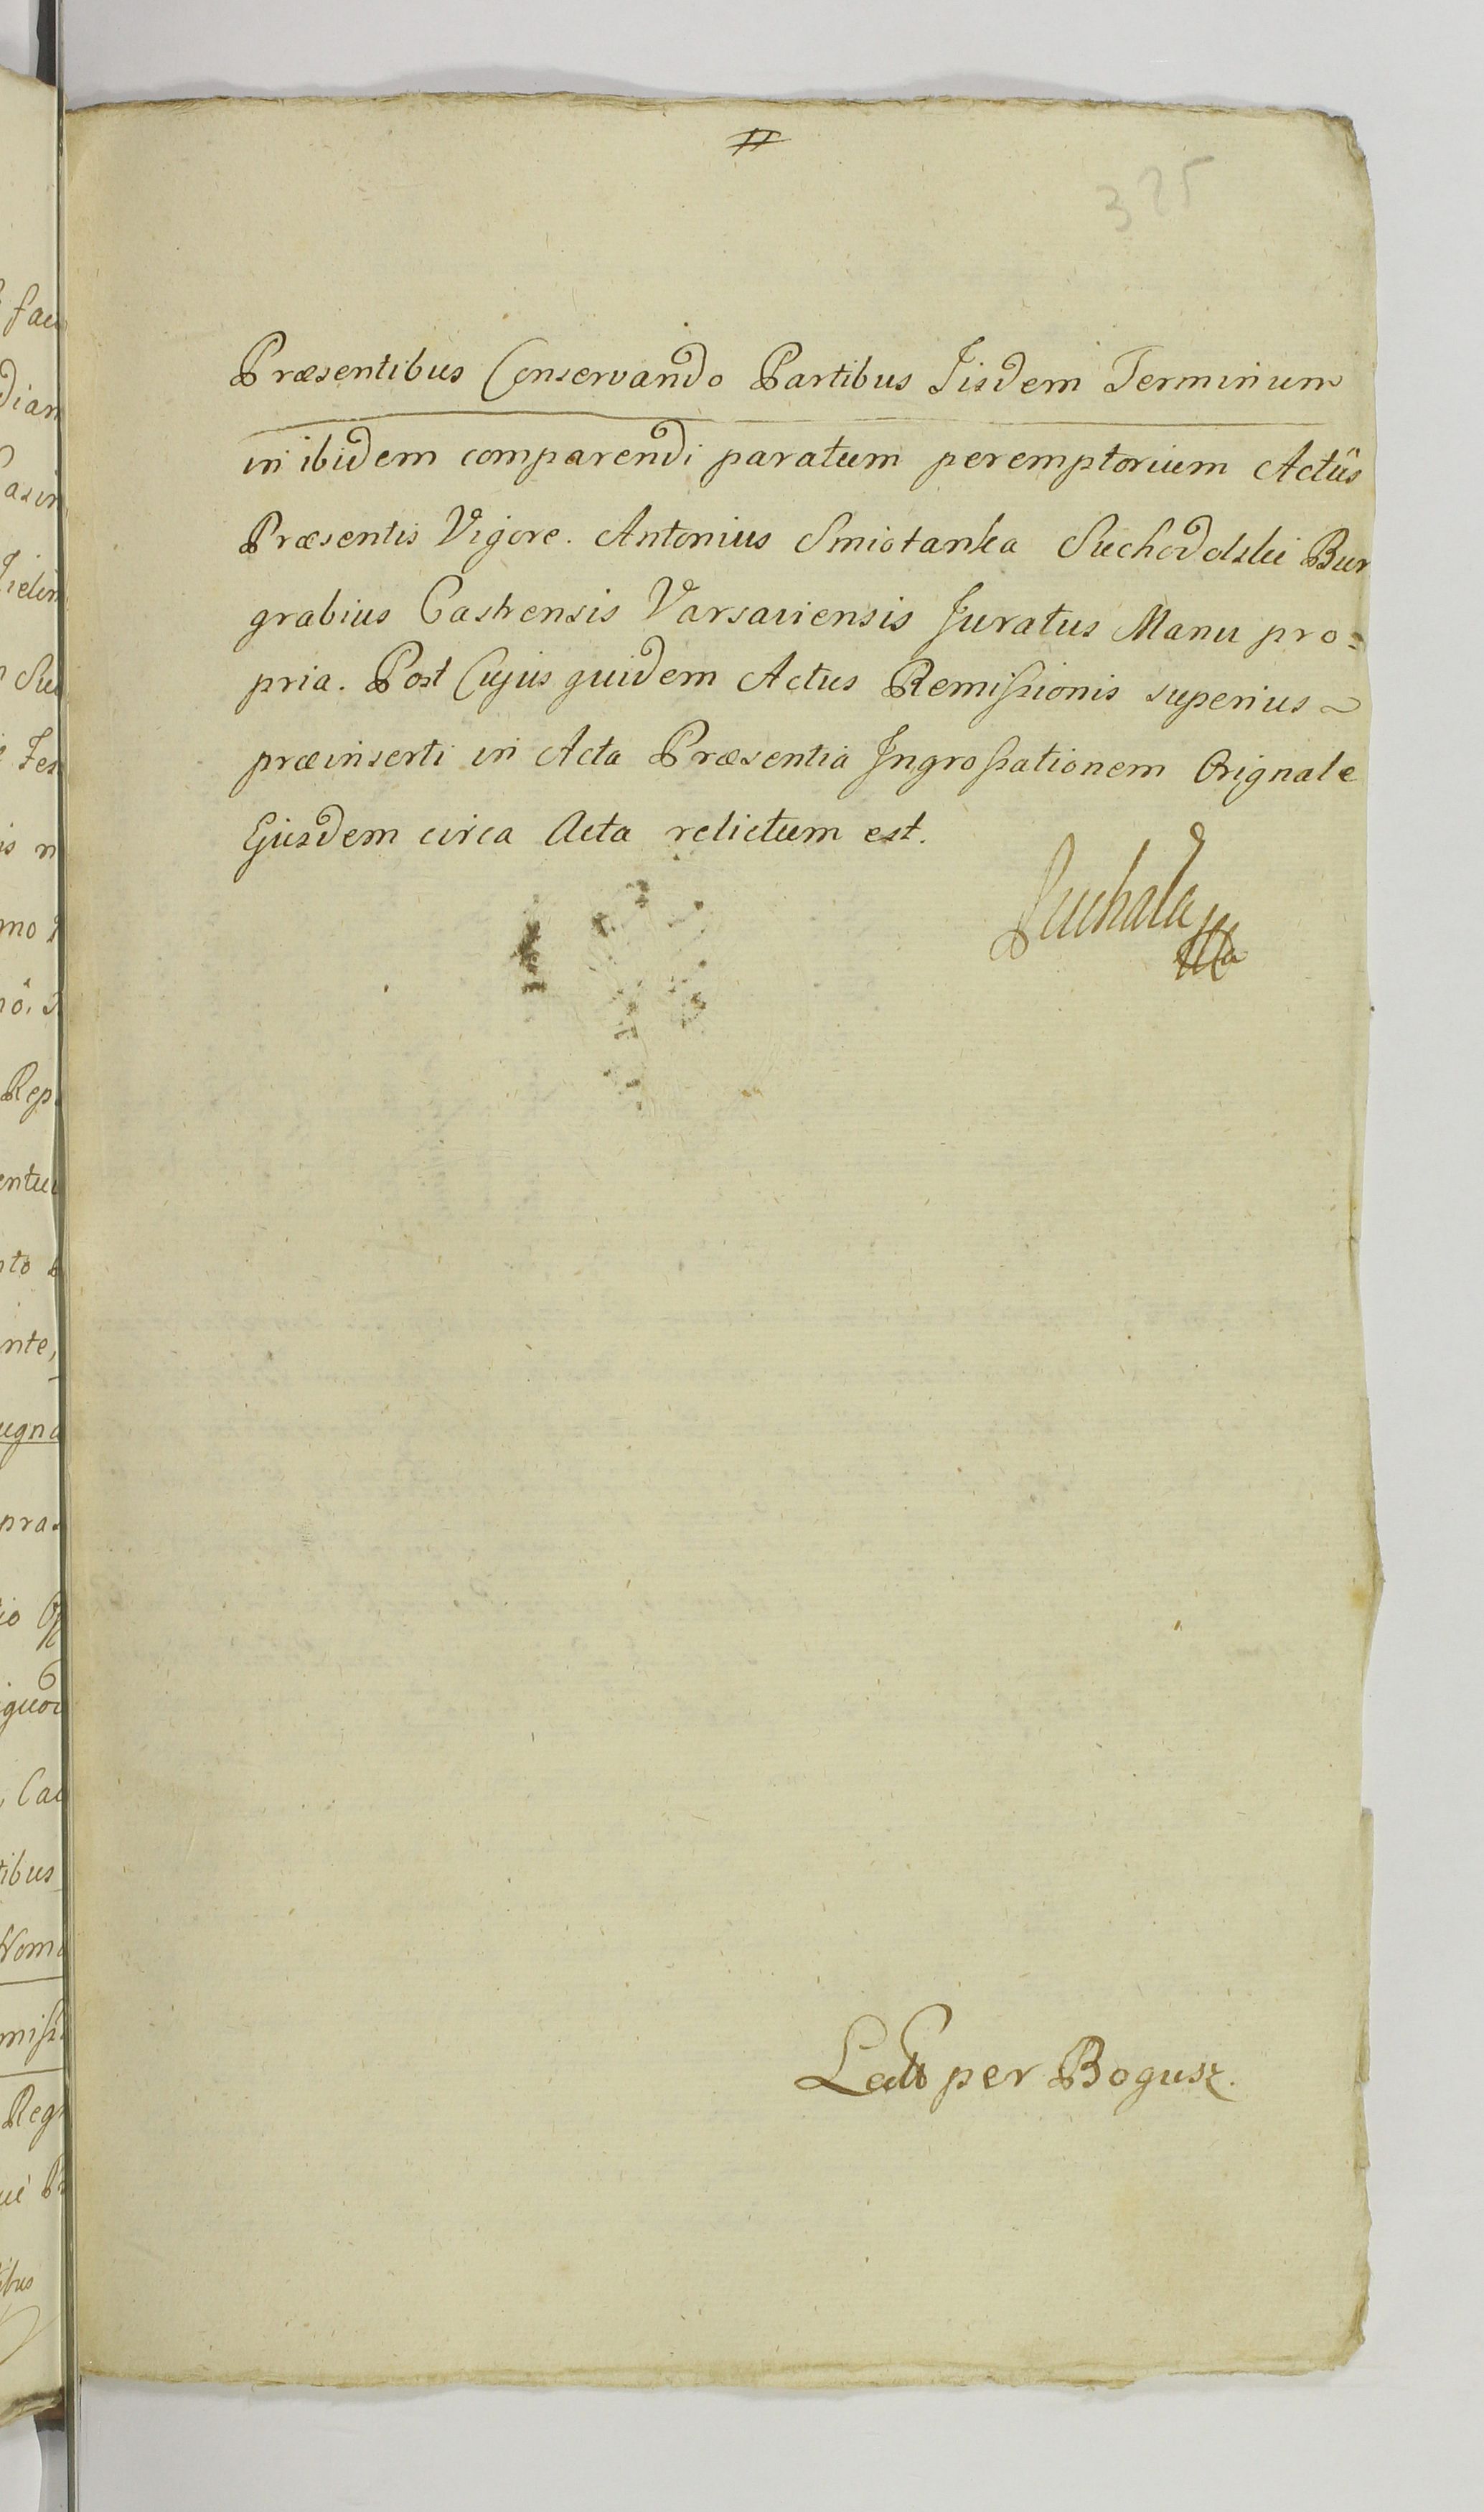 325
Præsentibus Conservando Partibus Iisdem Terminum
in ibidem comparendi paratum peremptorium Actûs
Præsentis Vigore. Antonius Smiotanka Suchodolski Bur
grabius Castrensis Varsaviensis Juratus Manu pro=
pria. Post Cujus quidem Actus Remissionis superius
præinserti in Acta Præsentia Ingrossationem Orignale
Ejusdem circa Acta relictum est.
per Bogusz.